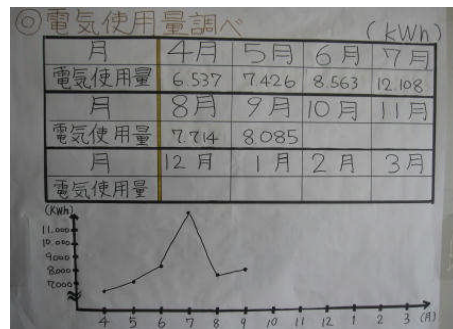 ◎電気使用量調べ (kWh)
月 4月 5月 6月 7月
電気使用量 6.537 7.426 8.563 12.108
月 8月 9月 10月 11月
電気使用量 7.714 8.085
月 12月 1月 2月 3月
電気使用量
(KWh)
11.000
10.000
9000
8.000
7.000
4 5 6 7 8 9 10 11 12 1 2 3 (月)